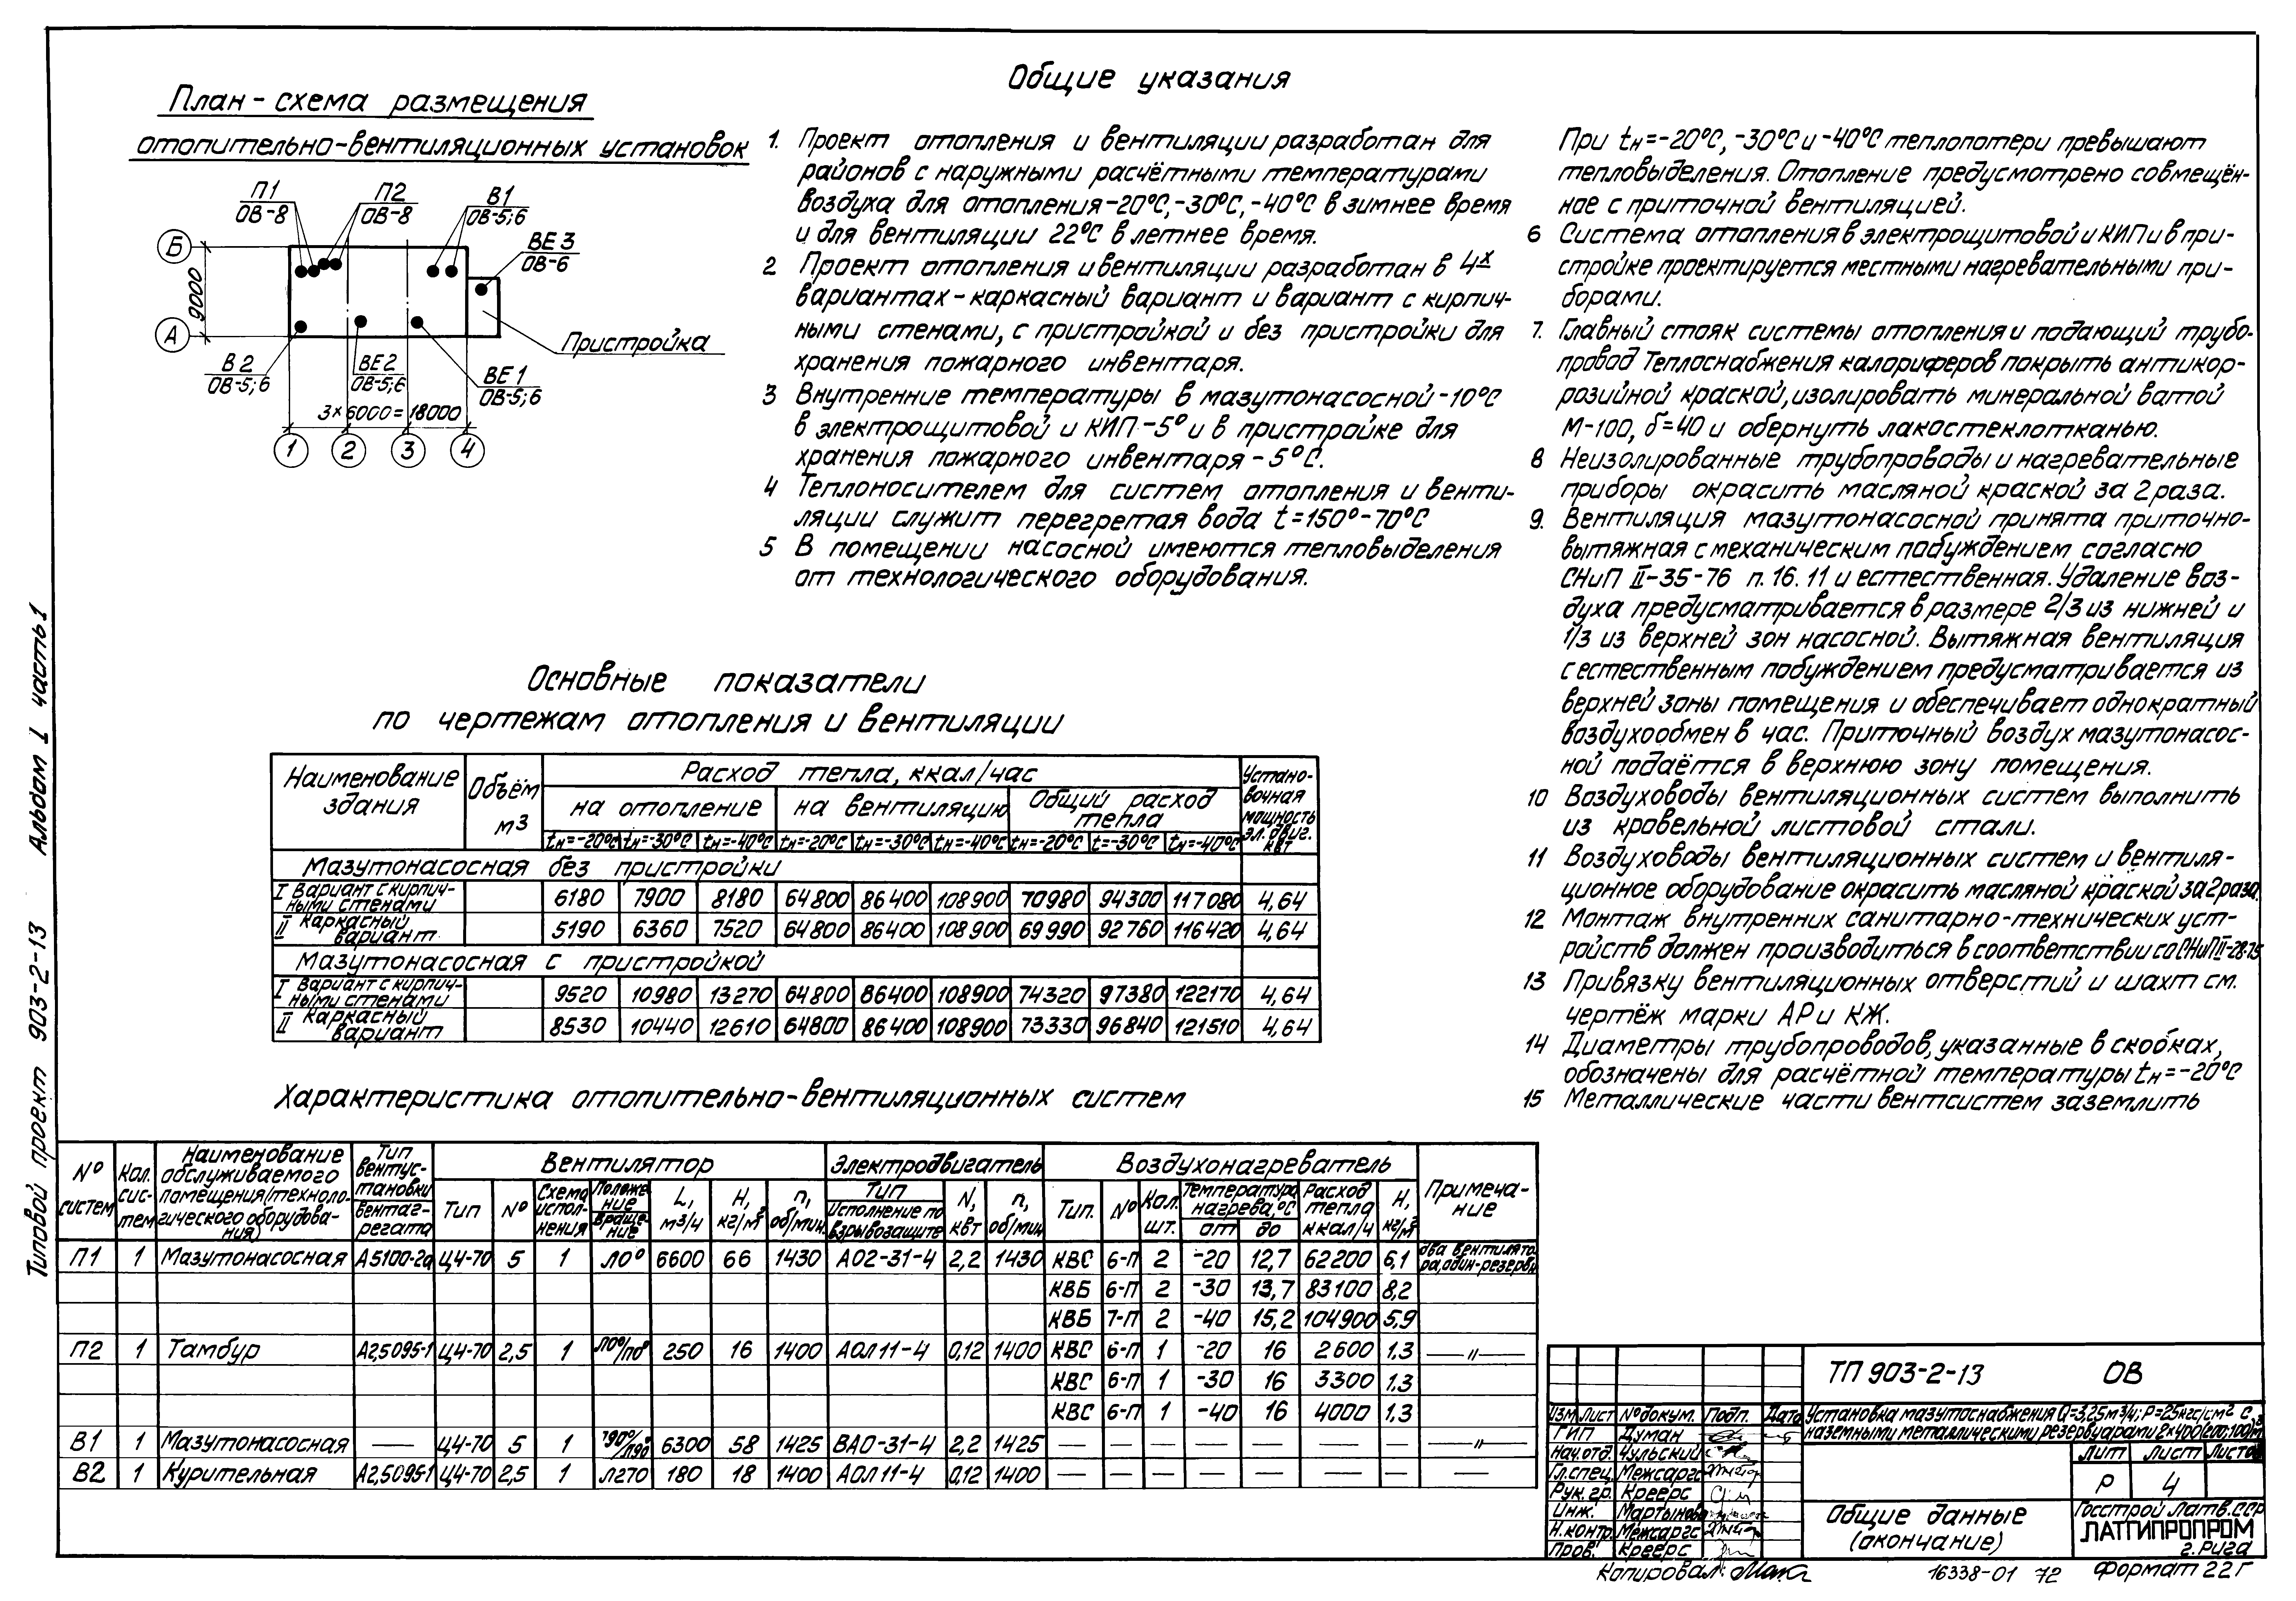 План-схема размещения
отопительно-вентиляционных установок
П1
ОВ-8
П2
ОВ-8
В1
ОВ-5;6
ВЕ3
ОВ-6
Б
А
9000
Пристройка
В2
ОВ-5;6
ВЕ2
ОВ-5;6
ВЕ1
ОВ-5;6
3×6000=18000
1 2 3 4
Общие указания
1. Проект отопления и вентиляции разработан для
районов с наружными расчётными температурами
воздуха для отопления -20°С, -30°С, -40°С в зимнее время
и для вентиляции 22°С в летнее время.
2 Проект отопления и вентиляции разработан в 4х
вариантах - каркасный вариант и вариант с кирпич-
ными стенами, с пристройкой и без пристройки для
хранения пожарного инвентаря.
3 Внутренние температуры в мазутонасосной -10°С
в электрощитовой и КИП -5° и в пристройке для
хранения пожарного инвентаря - 5°С.
4 Теплоносителем для систем отопления и венти-
ляции служит перегретая вода t=150°-70°С
5 В помещении насосной имеются тепловыделения
от технологического оборудования.
При tн=-20°С, -30°С и -40°С теплопотери превышают
тепловыделения. Отопление предусмотрено совмещён-
ное с приточной вентиляцией.
6 Система отопления в электрощитовой и КИП и в при-
стройке проектируется местными нагревательными при-
борами.
7. Главный стояк системы отопления и подающий трубо-
провод теплоснабжения калориферов покрыть антикор-
розийной краской, изолировать минеральной ватой
М-100, δ=40 и обернуть лакостеклотканью.
8 Неизолированные трубопроводы и нагревательные
приборы окрасить масляной краской за 2 раза.
9. Вентиляция мазутонасосной принята приточно-
вытяжная с механическим побуждением согласно
СНиП II-35-76 п. 16.11 и естественная. Удаление воз-
духа предусматривается в размере 2/3 из нижней и
1/3 из верхней зон насосной. Вытяжная вентиляция
с естественным побуждением предусматривается из
верхней зоны помещения и обеспечивает однократный
воздухообмен в час. Приточный воздух мазутонасос-
ной подаётся в верхнюю зону помещения.
10 Воздуховоды вентиляционных систем выполнить
из кровельной листовой стали.
11 Воздуховоды вентиляционных систем и вентиля-
ционное оборудование окрасить масляной краской за 2 раза.
12 Монтаж внутренних санитарно-технических уст-
ройств должен производиться в соответствии со СНиП II-28-75
13 Привязку вентиляционных отверстий и шахт см.
чертёж марки АР и КЖ.
14 Диаметры трубопроводов, указанные в скобках,
обозначены для расчётной температуры tн=-20°С
15 Металлические части вентсистем заземлить
Основные показатели
по чертежам отопления и вентиляции
Наименование здания Объём м3 Расход тепла, ккал/час Устано-вочная мощность эл. двиг. квт
на отопление на вентиляцию Общий расход тепла
tн=-20°С tн=-30°С tн=-40°С tн=-20°С tн=-30°С tн=-40°С tн=-20°С t=-30°С tн=-40°С
Мазутонасосная без пристройки
I Вариант с кирпич-ными стенами 6180 7900 8180 64800 86400 108900 70980 94300 117080 4,64
II Каркасный вариант 5190 6360 7520 64800 86400 108900 69990 92760 116420 4,64
Мазутонасосная с пристройкой
I Вариант с кирпич-ными стенами 9520 10980 13270 64800 86400 108900 74320 97380 122170 4,64
II Каркасный вариант 8530 10440 12610 64800 86400 108900 73330 96840 121510 4,64
Характеристика отопительно-вентиляционных систем
№ систем Кол. сис-тем Наименование обслуживаемого помещения (техноло-гического оборудова-ния) Тип вентус-тановки вентаг-регата Вентилятор Электродвигатель Воздухонагреватель Примеча-ние
Тип № Схема испол-нения Положе-ние враще-ние L, м3/ч Н, кг/м2 n, об/мин. Тип исполнение по взрывозащите N, квт n, об/мин. Тип. № Кол. шт. Температура нагрева, °С от до Расход тепла ккал/ч Н, кг/м2
П1 1 Мазутонасосная А5100-2а Ц4-70 5 1 Л0° 6600 66 1430 АО2-31-4 2,2 1430 КВС 6-П 2 -20 12,7 62200 6,1 два вентилято-ра, один-резервн.
КВБ 6-П 2 -30 13,7 83100 8,2
КВБ 7-П 2 -40 15,2 104900 5,9
П2 1 Тамбур А2,5095-1 Ц4-70 2,5 1 Л0°/П0° 250 16 1400 АОЛ11-4 0,12 1400 КВС 6-П 1 -20 16 2600 1,3 —〃—
КВС 6-П 1 -30 16 3300 1,3
КВС 6-П 1 -40 16 4000 1,3
В1 1 Мазутонасосная — Ц4-70 5 1 6300 58 1425 ВАО-31-4 2,2 1425 — — — — — — — —〃—
В2 1 Курительная А2,5095-1 Ц4-70 2,5 1 Л270 180 18 1400 АОЛ11-4 0,12 1400 — — — — — — — —
Типовой проект 903-2-13 Альбом I часть 1
ТП 903-2-13 ОВ
Изм Лист № докум. Подп. Дата
Установка мазутоснабжения Q=3,25м3/ч; Р=25кгс/см2 с
наземными металлическими резервуарами 2×400(200;100)м3
ГИП Думан
Нач.отд. Чульский
Гл.спец. Межсаргс
Рук. гр. Креерс
Инж. Мартынова
Н.контр. Межсаргс
Пров. Креерс
Лит Лист Листов
Р 4
Общие данные
(окончание)
Госстрой Латв.ССР
ЛАТГИПРОПРОМ
г.Рига
Копировал:
16338-01 72
Формат 22Г